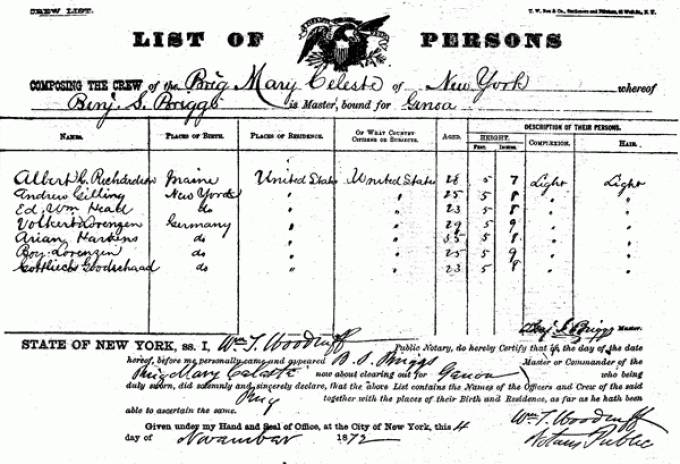 CREW LIST.
T. W. Box & Co., Stationers and Printers, 45 Wall St., N. Y.
LIST OF PERSONS
COMPOSING THE CREW of the Brig Mary Celeste of New York whereof
Benj. S. Briggs is Master, bound for Genoa
DESCRIPTION OF THEIR PERSONS.
NAMES. PLACES OF BIRTH. PLACES OF RESIDENCE. OF WHAT COUNTRY CITIZENS OR SUBJECTS. AGED. HEIGHT. COMPLEXION. HAIR.
FEET. INCHES.
Albert G. Richardson Maine United States United States 28 5 7 Light Light
Andrew Gilling New York " " 25 5 8 " "
Ed. Wm Head do " " 23 5 8 " "
Volkert Lorenzen Germany " " 29 5 9 " "
Arian Harbens do " " 35 5 8 " "
Boy Lorenzen do " " 25 5 9 " "
Gottlieb Goodschaad do " " 23 5 8 " "
Benj S. Briggs Master.
STATE OF NEW YORK, ss. I, Wm T. Woodruff Public Notary, do hereby Certify that in the day of the date
hereof, before me personally came and appeared B. S. Briggs Master or Commander of the
Brig Mary Celeste now about clearing out for Genoa who being
duly sworn, did solemnly and sincerely declare, that the above List contains the Names of the Officers and Crew of the said
Brig together with the places of their Birth and Residence, as far as he hath been
able to ascertain the same.
Given under my Hand and Seal of Office, at the City of New York, this 4
day of November 1872
Wm T. Woodruff
Notary Public